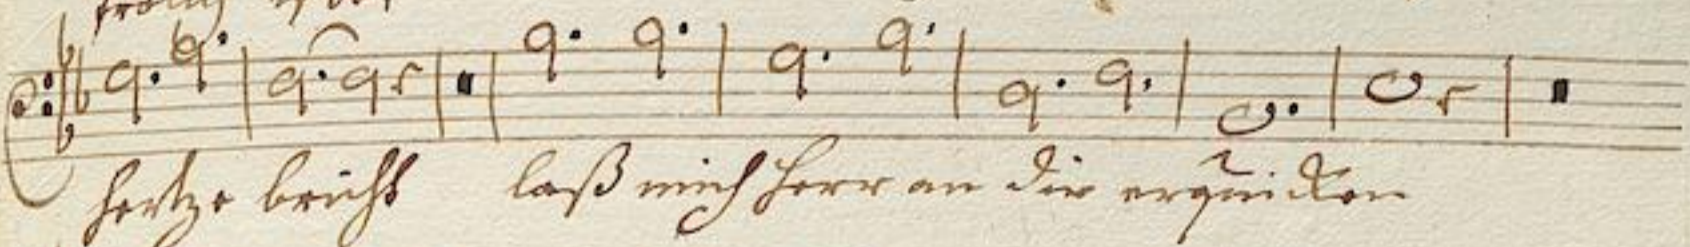 hertze bricht laß mich Herr an dir erquicken